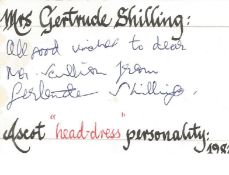 Mrs Gertrude Shilling:
All good wishes to dear
from
Gertrude Shilling.
Ascot "head-dress" personality:
198